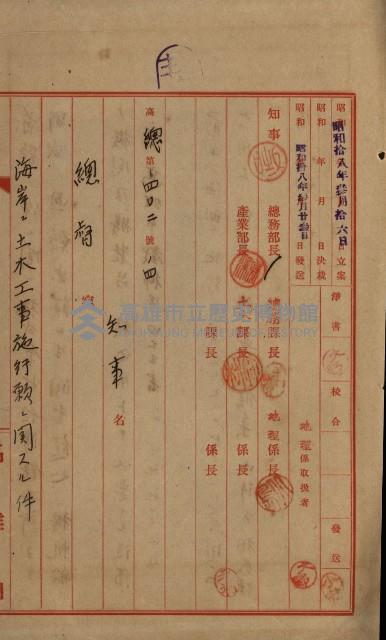 昭和拾八年參月拾六日立案
昭和 年 月 日決裁
昭和拾八年 月廿 日發送
淨書
校合
發送
地理係取扱者
知事
總務部長
總務課長
地理係長
產業部長
土 課長
係長
課長
係長
高總第一四〇二號ノ四
知事名
總督
海岸ニ土木工事施行願ニ関スル件
高雄市立歷史博物館